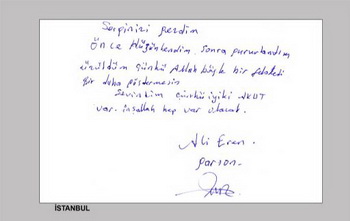 Serginizi gezdim
Önce Hüzünlendim sonra gururlandım
üzüldüm çünkü Allah böyle bir felaketi
bir daha göstermesin
Sevindim çünkü iyiki AKUT
var. inşallah hep var olacak.
Ali Eren.
İSTANBUL